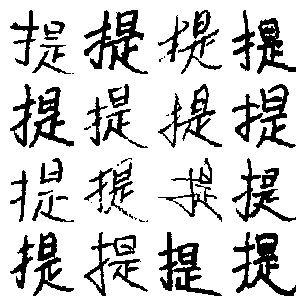 提提提提
提提提提
提提提提
提提提提